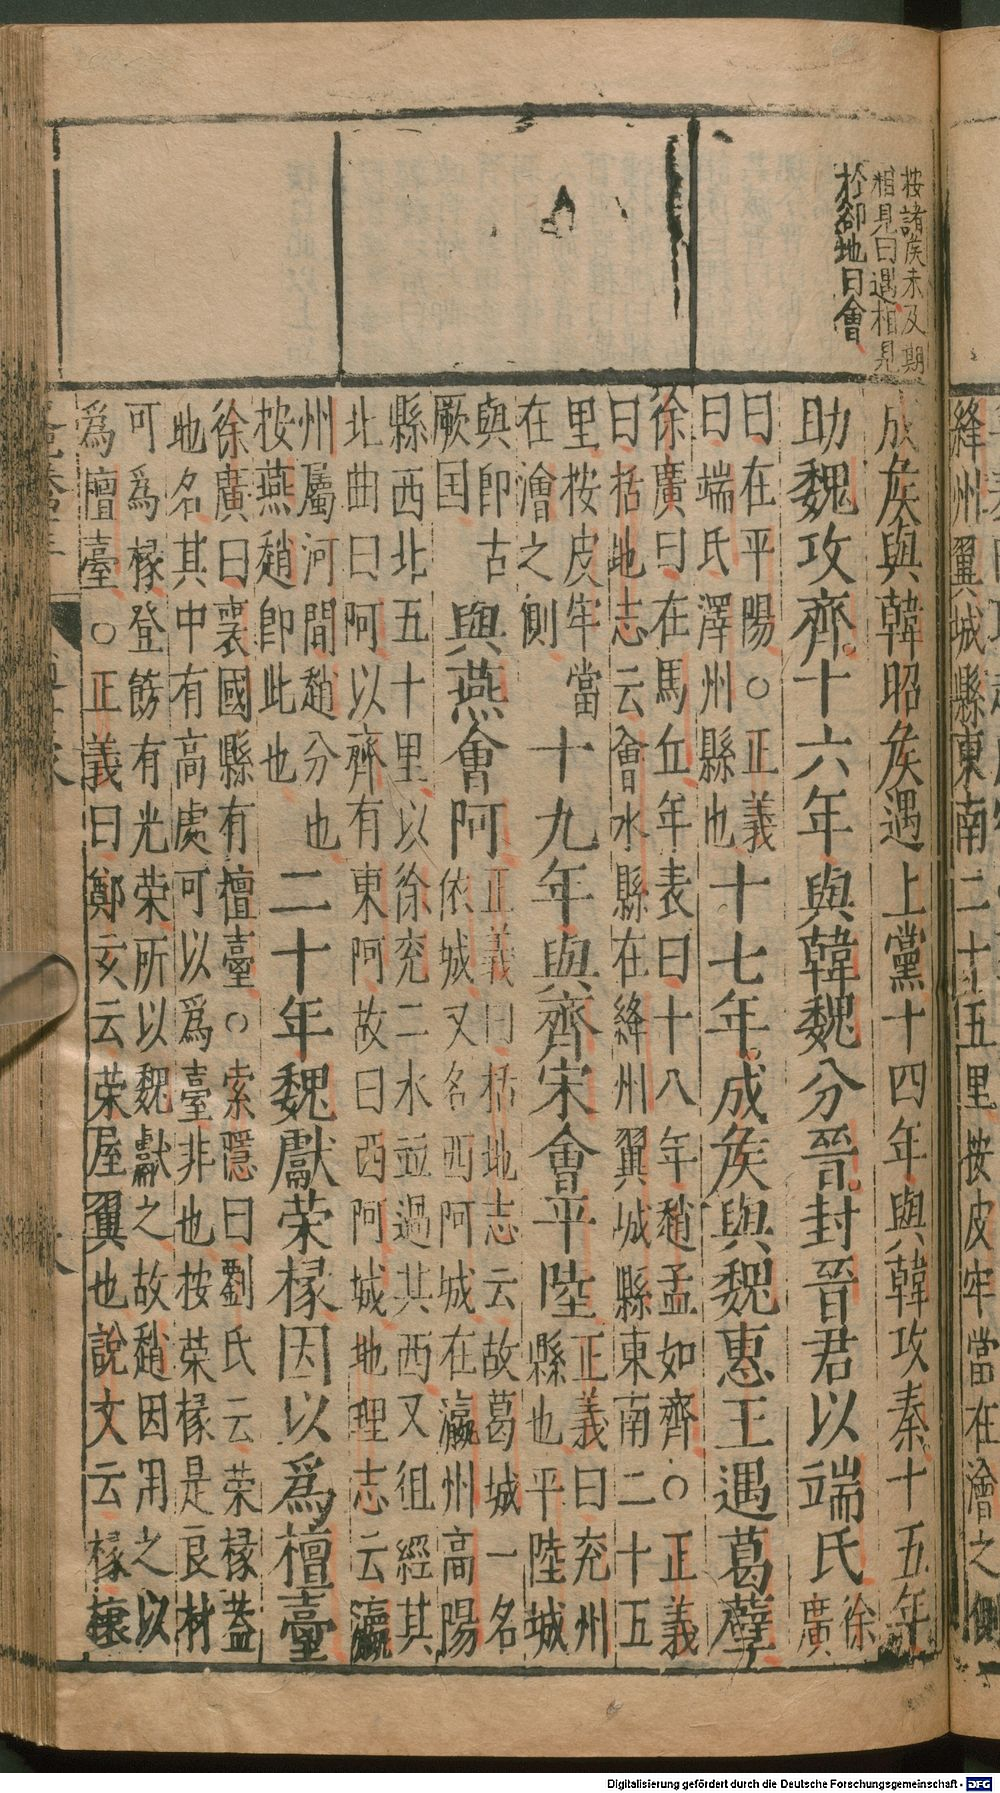 絳州翼城縣東南二十五里按皮牢當在澮之側
按諸侯未及期
相見曰遇相見
於郤地曰會
成侯與韓昭侯遇上黨十四年與韓攻秦十五年
助魏攻齊十六年與韓魏分晉封晉君以端氏徐廣
曰在平陽○正義
曰端氏澤州縣也
十七年成侯與魏惠王遇葛孽
徐廣曰在馬丘年表曰十八年趙孟如齊○正義
曰括地志云會水縣在絳州翼城縣東南二十五
里按皮牢當
在澮之側
十九年與齊宋會平陸
正義曰兗州
縣也平陸城
與即古
厥国
與燕會阿
正義曰括地志云故葛城一名
依城又名西阿城在瀛州高陽
縣西北五十里以徐兗二水並過其西又徂經其
北曲曰阿以齊有東阿故曰西阿城地理志云瀛
州屬河間趙分也
按燕趙即此也
二十年魏獻荣椽因以爲檀臺
徐廣曰襄國縣有檀臺○索隱曰劉氏云荣椽蓋
地名其中有高處可以爲臺非也按荣椽是良材
可爲椽登飾有光荣所以魏獻之故趙因用之以
爲檀臺○正義曰鄭玄云荣屋翼也說文云椽榱
Digitalisierung gefördert durch die Deutsche Forschungsgemeinschaft - DFG